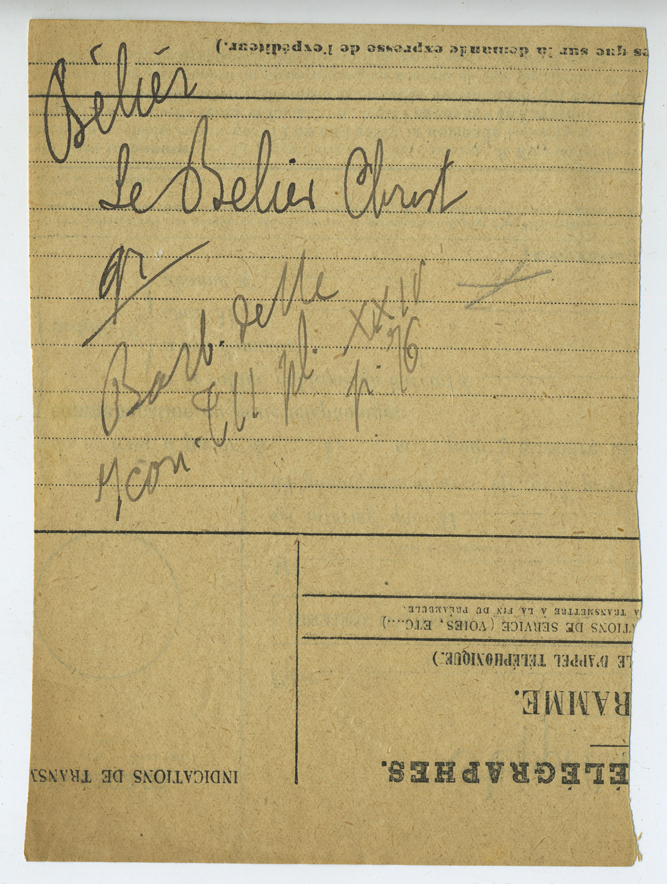 es que sur la demande expresse de l'expéditeur.)
Bélier
Le Belier Christ
gr
Barb. de M
Icon. T II pl. XXIV
p. 76
A TRANSMETTRE À LA FIN DU PRÉAMBULE.
TIONS DE SERVICE (VOIES, ETC....)
LE D'APPEL TÉLÉPHONIQUE.)
RAMME.
ÉLÉGRAPHES.
INDICATIONS DE TRANS